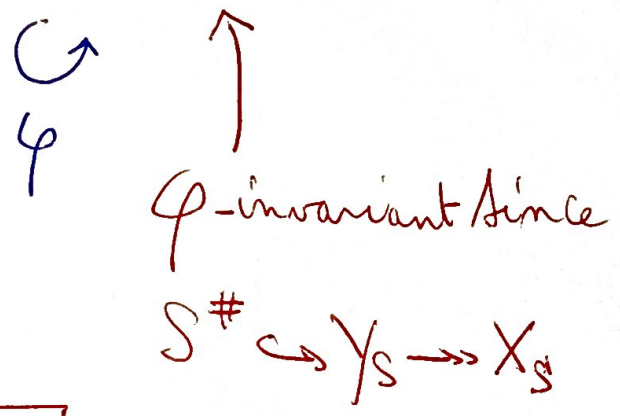 φ
φ-invariant since
S^# ↪ Y_S ↠ X_S